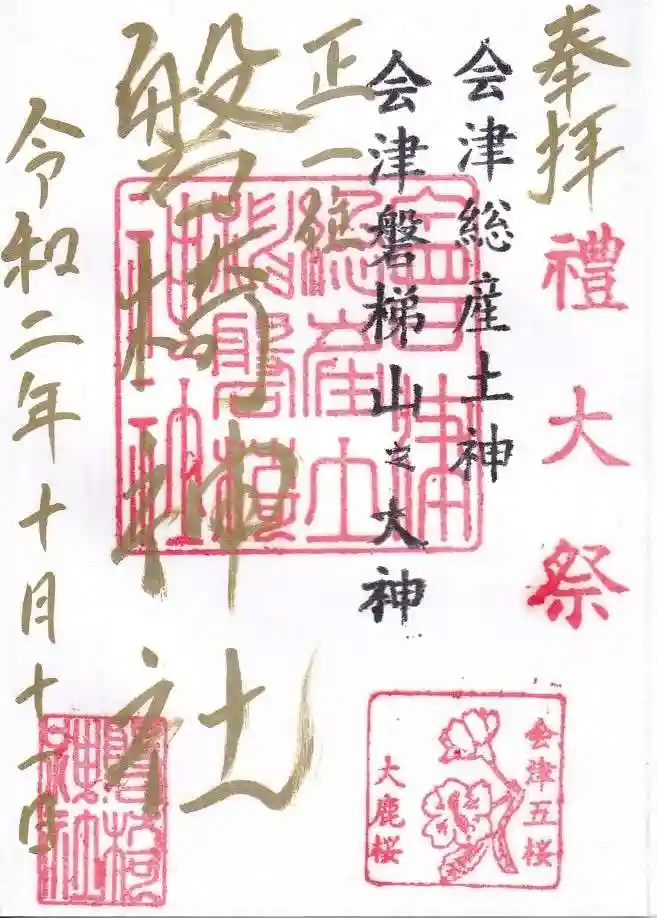 奉拝
禮大祭
会津総産土神
会津磐梯山之大神
正一位
磐椅神社
令和二年十月十一日
会津
総産土
磐椅神社
会津五桜
大鹿桜